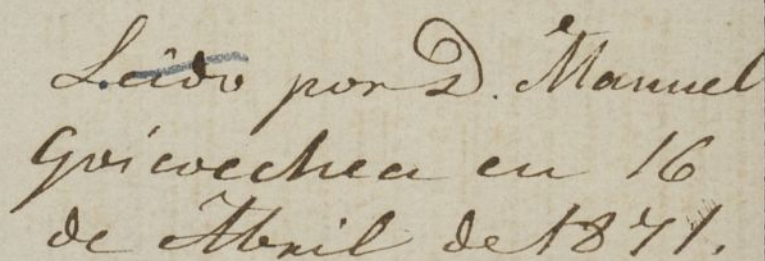 Leido por D. Manuel
Goicoechea en 16
de Abril de 1871.